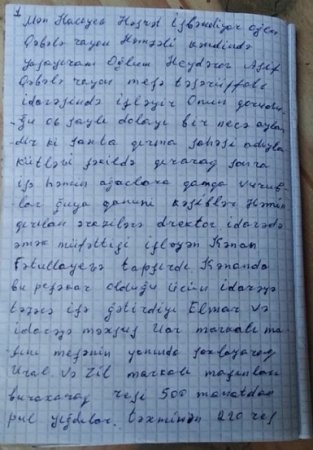 1
Mən Həsəyev Həşrət İsfəndiyar oğlu
Qəbələ rayon Həmzəli kəndində
yaşayıram Oğlum Heydərov Asif
Qəbələ rayon meşə təsərüffatı
idarəsində işləyir Onun
Bir neçə aylar
dir ki sahəsi
kütləvi şəkildə qıraraq sonra
isə həmin ağaclara damğa vurub-
lar guya qanuni kəsiblər Həmin
qırılan əraziləri direktor idarədə
əmək müfəttişi işləyən Kənan
Fətullayevə tapşırdı Kənanda
bu peşəkar olduğu üçün idarəyə
təzəcə işə gətirdiyi Elmar və
idarəyə məxsus Uaz markalı ma-
şını meşənin yanında saxlayaraq
Ural və Zil markalı maşınları
buraxaraq reysi 500 manatdan
pul yığdılar. təxminən 220 reys